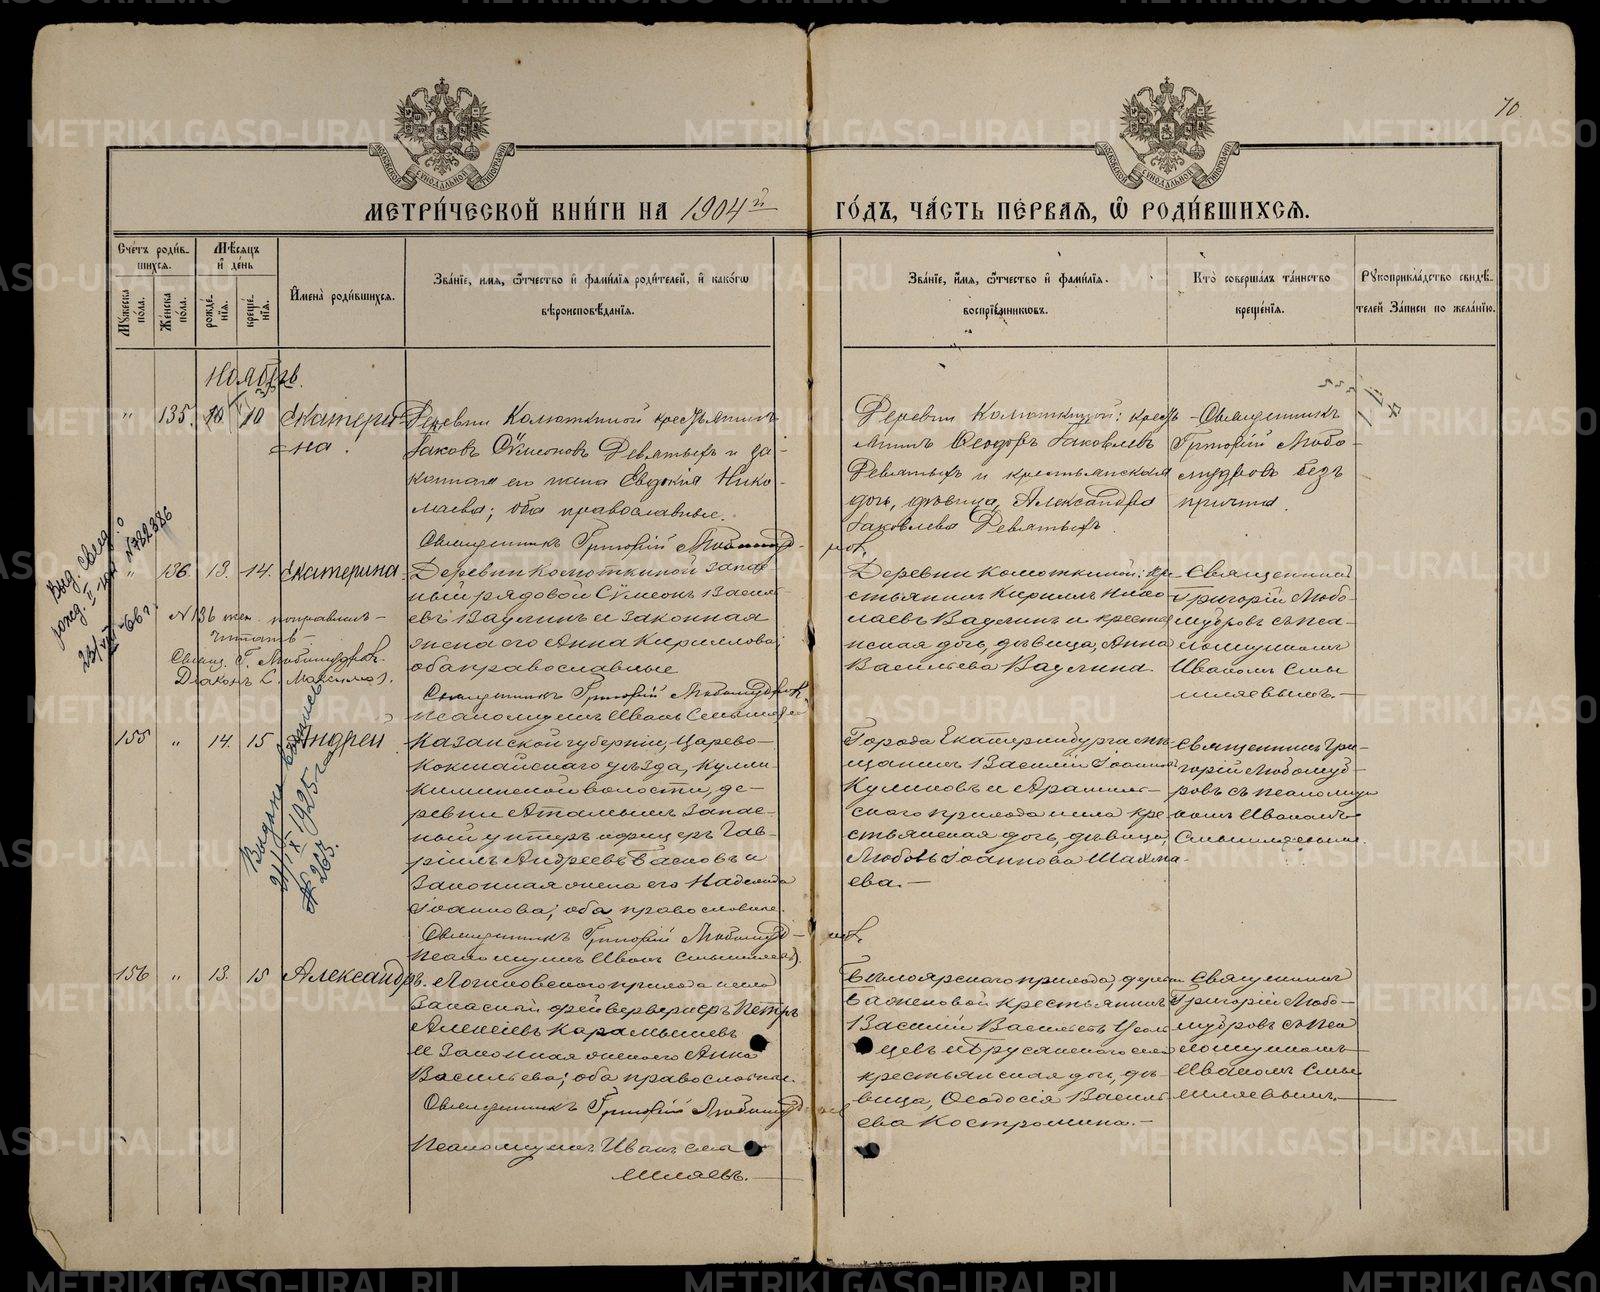 70
МЕТРИ́ЧЕСКОЙ КНИ́ГИ НА 1904й ГО́ДЪ, ЧА́СТЬ ПЕ́РВАЯ, Ѽ РОДИ́ВШИХСѦ.
Счетъ роди́вшихся.
Мꙋжеска по́ла.
Же́нска по́ла.
Мѣ́сяцъ и де́нь
рожде́нїя.
креще́нїя.
И́мена роди́вшихся.
Зва́нїе, имя, ѻтчество и фами́лїя роди́телей, и како́гѡ вѣроисповѣ́данїя.
Зва́нїе, и́мя, ѻтчество и фами́лїя воспрїе́мникѡвъ.
Кто̀ соверша́лъ та́инство креще́нїя.
Рꙋкоприкла́дство свидѣ́телей За́писи по жела́нїю.
Ноябрь.
" 135. 10 10 Екатери-
на.
Деревни Колюткиной крестьянинъ
Іаковъ Сѵмеоновъ Девятыхъ и за-
конная его жена Евдокія Нико-
лаева; оба православные.
Священникъ Григорій Любомудровъ.
Деревни Колюткиной: кресть-
янинъ Ѳеодоръ Іаковлевъ
Девятыхъ и крестьянская
дочь, дѣвица, Александра
Іаковлева Девятыхъ.
Священникъ
Григорій Любо-
мудровъ безъ
причта.
" 136. 13. 14. Екатерина.
Деревни Колюткиной запас-
ный рядовой Сѵмеонъ Василь-
евъ Ваулинъ и законная
жена его Анна Кириллова;
оба православные
Священникъ Григорій Любомудровъ
Псаломщикъ Иванъ Смышляевъ
Деревни Колюткиной: кре-
стьянинъ Кириллъ Нико-
лаевъ Ваулинъ и крестья
нская дочь, дѣвица, Анна
Васильева Ваулина.
Священникъ
Григорій Любо-
мудровъ съ пса-
ломщикомъ
Иваномъ Смы
шляевымъ.
Выд. свид. о
рожд. II-ЮА №782386
23/VIII-66 г.
N 136 жен. поправилъ-
читать-
Свящ. Г. Любомудровъ.
Діаконъ С. Максимов.
155 " 14. 15 Андрей
Казанской губерніи, Царево-
кокшайскаго уѣзда, Кулле-
киминской волости, де-
ревни Атамышъ запас-
ный унтеръ-офицеръ Гав-
ріилъ Андреевъ Басовъ и
законная жена его Надежда
Іоаннова; оба православные.
Священникъ Григорій Любомудровъ.
Псаломщикъ Иванъ Смышляевъ.
Города Екатеринбурга мѣ-
щанинъ Василій Іоаннов
Куликовъ и Арамиль-
скаго прихода и села кре
стьянская дочь, дѣвица,
Любовь Іоаннова Шахма-
ева.-
Священникъ Гри-
горій Любомуд-
ровъ съ псаломщи
комъ Иваномъ
Смышляевымъ.
Выдана выпись
21/IX 1925 г
№ 263.
156 " 13. 15 Александръ.
Логиновскаго прихода и села
запасный фейерверкеръ Петръ
Алексѣевъ Карамышевъ
и законная жена его Анна
Васильева; оба православные.
Священникъ Григорій Любомудровъ
Псаломщикъ Иванъ Смы
шляевъ.-
Бѣлоярскаго прихода, деревни
Баженовой крестьянинъ
Василій Васильевъ
и Брусянскаго села
крестьянская дочь, дѣ-
вица, Ѳеодосія Василь
ева Костромина.-
Священникъ
Григорій Любо-
мудровъ съ пса
ломщикомъ
Иваномъ Смы
шляевымъ.-
METRIKI.GASO-URAL.RU